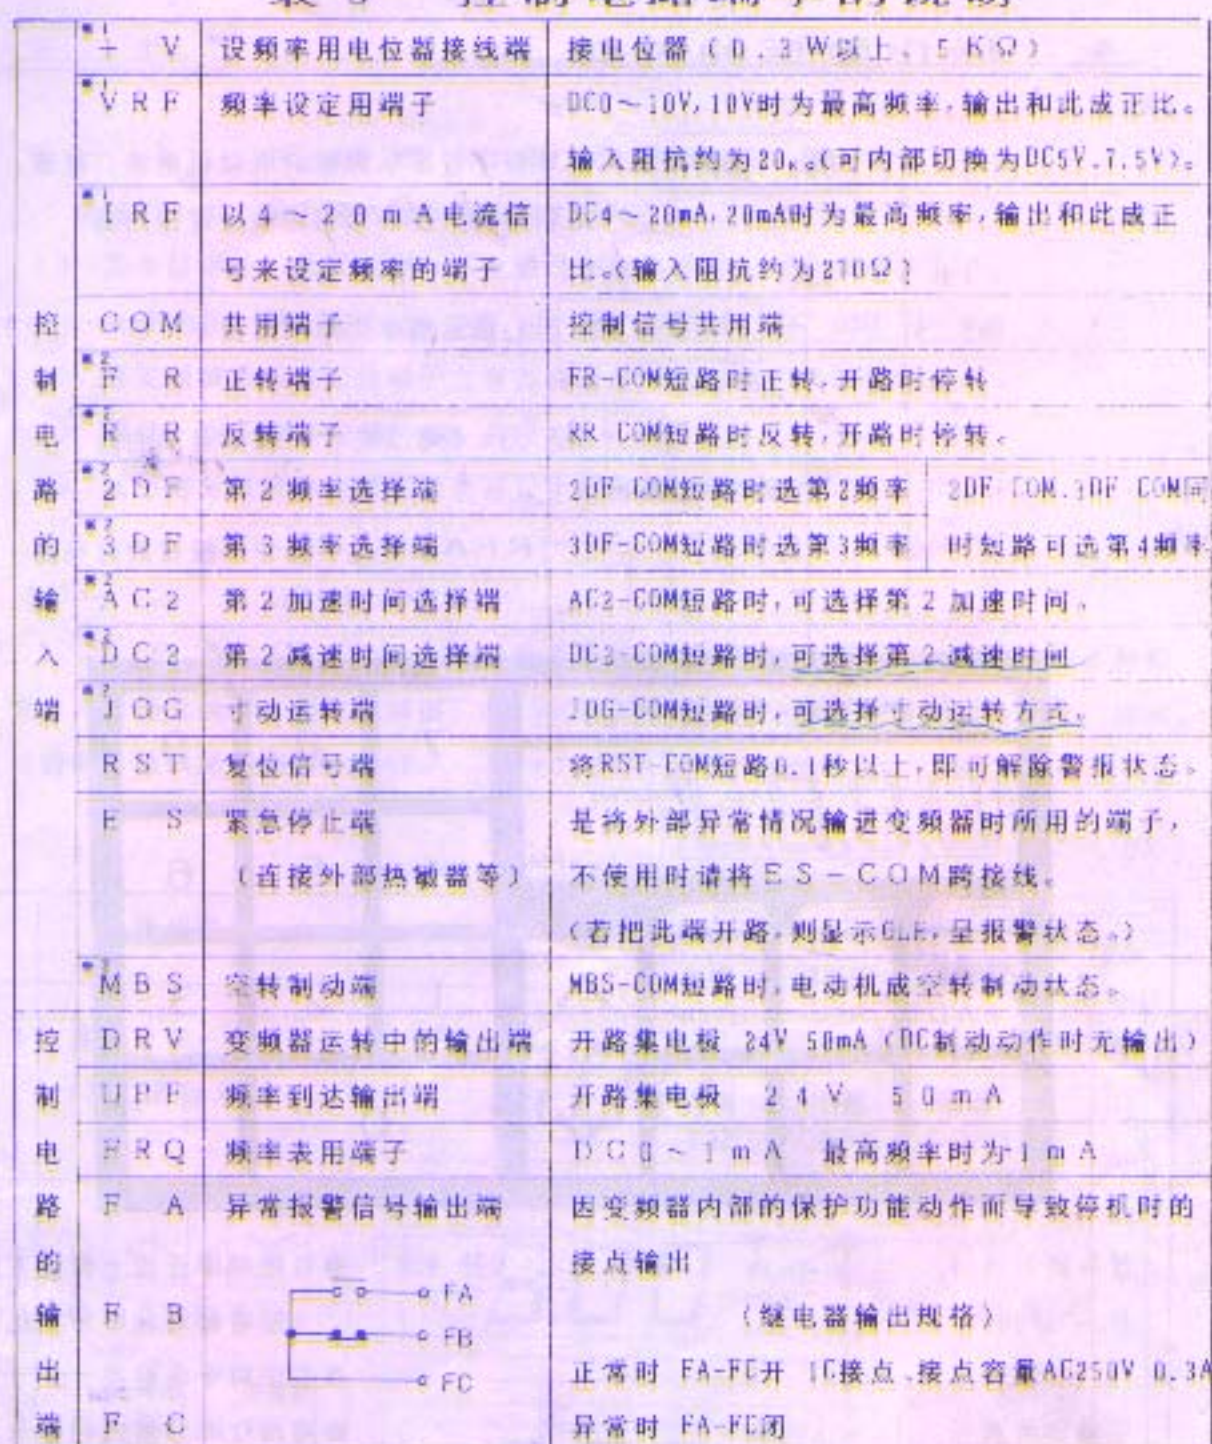 控制电路端子的说明
*1 + V 设频率用电位器接线端 接电位器（0.3W以上、5KΩ）
*1 VRF 频率设定用端子 DC0～10V,10V时为最高频率,输出和此成正比。
输入阻抗约为20 (可内部切换为DC5V.7.5V)。
*1 IRF 以4～20mA电流信 DC4～20mA,20mA时为最高频率,输出和此成正
号来设定频率的端子 比。(输入阻抗约为270Ω)
控 COM 共用端子 控制信号共用端
制 *2 F R 正转端子 FR-COM短路时正转,开路时停转
电 *2 R R 反转端子 RR COM短路时反转,开路时停转。
路 *2 2DF 第2频率选择端 2DF-COM短路时选第2频率 2DF COM.3DF COM同
的 *2 3DF 第3频率选择端 3DF-COM短路时选第3频率 时短路可选第4频率
输 *2 AC2 第2加速时间选择端 AC2-COM短路时,可选择第2加速时间。
入 *2 DC2 第2减速时间选择端 DC2-COM短路时,可选择第2减速时间
端 *2 JOG 寸动运转端 JOG-COM短路时,可选择寸动运转方式。
RST 复位信号端 将RST-COM短路0.1秒以上,即可解除警报状态。
E S 紧急停止端 是将外部异常情况输进变频器时所用的端子,
（连接外部热敏器等） 不使用时请将ES－COM跨接线。
(若把此端开路,则显示 ,呈报警状态。)
MBS 空转制动端 MBS-COM短路时,电动机成空转制动状态。
控 DRV 变频器运转中的输出端 开路集电极 24V 50mA（DC制动动作时无输出）
制 UPF 频率到达输出端 开路集电极 24V 50mA
电 FRQ 频率表用端子 DC0～1mA 最高频率时为1mA
路 F A 异常报警信号输出端 因变频器内部的保护功能动作而导致停机时的
的 接点输出
FA
输 F B （继电器输出规格）
FB
出 FC 正常时 FA-FC开 1C接点,接点容量AC250V 0.3A
端 F C 异常时 FA-FC闭